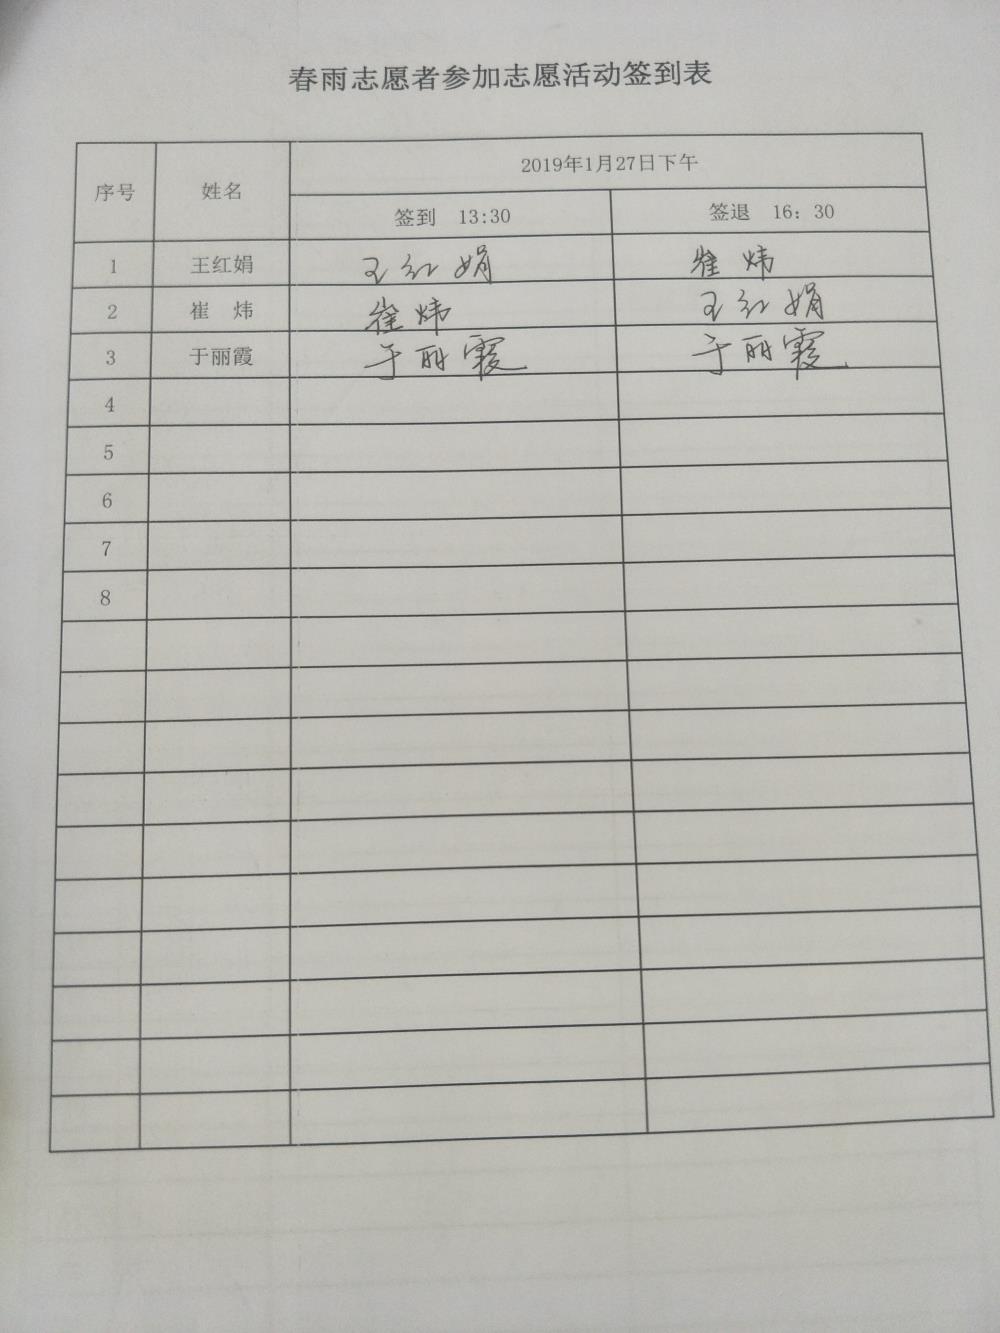 春雨志愿者参加志愿活动签到表
序号 姓名 2019年1月27日下午
签到 13:30 签退 16：30
1 王红娟 王红娟 崔炜
2 崔 炜 崔炜 王红娟
3 于丽霞 于丽霞 于丽霞
4
5
6
7
8